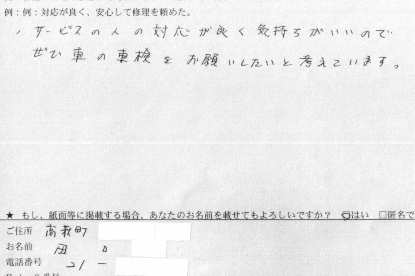 例：例：対応が良く、安心して修理を頼めた。
・サービスの人の対応が良く気持ちがいいので
ぜひ車の車検をお願いしたいと考えています。
★ もし、紙面等に掲載する場合、あなたのお名前を載せてもよろしいですか？ ☑はい □匿名で
ご住所 高萩町
お名前
電話番号 21 ー